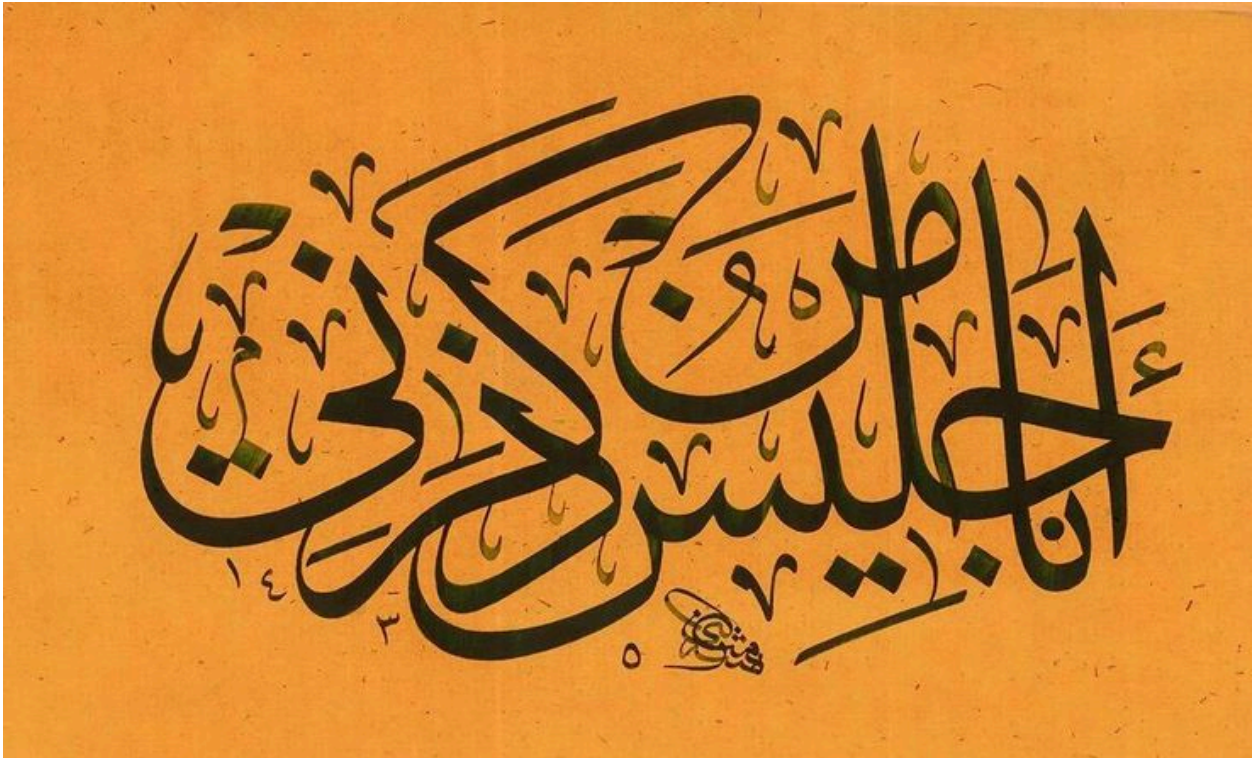 أَنَا جَلِيسُ مَنْ ذَكَرَنِي
١٤٣٥